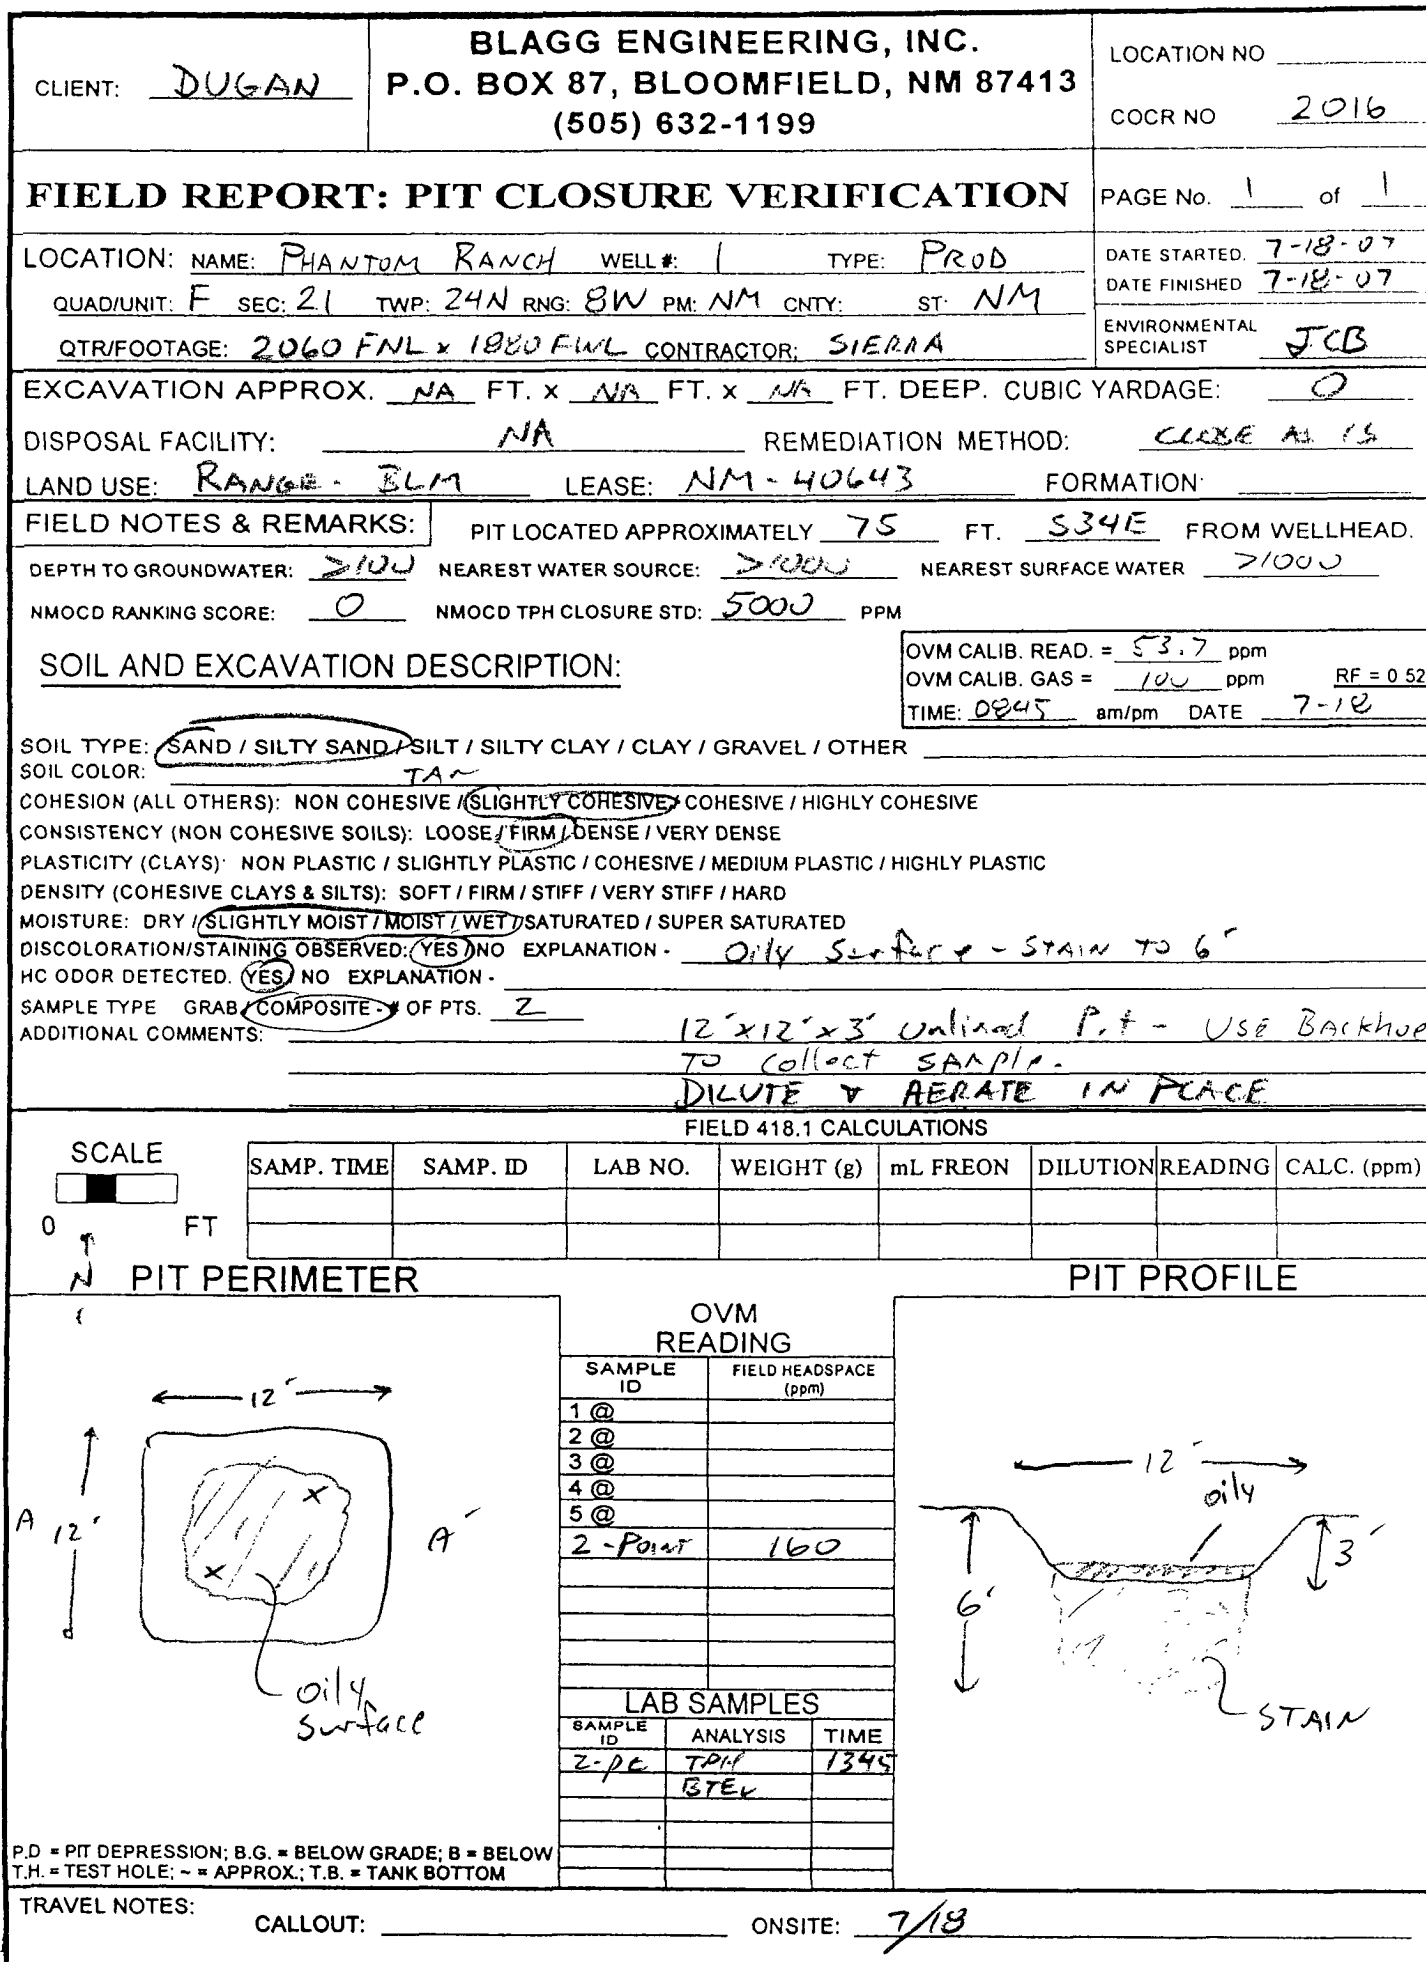 BLAGG ENGINEERING, INC.
P.O. BOX 87, BLOOMFIELD, NM 87413
(505) 632-1199
CLIENT: DUGAN
LOCATION NO
COCR NO 2016
FIELD REPORT: PIT CLOSURE VERIFICATION
PAGE No. 1 of 1
LOCATION: NAME: PHANTOM RANCH WELL #: 1 TYPE: PROD
QUAD/UNIT: F SEC: 21 TWP: 24N RNG: 8W PM: NM CNTY: ST NM
QTR/FOOTAGE: 2060 FNL x 1880 FWL CONTRACTOR: SIERRA
DATE STARTED. 7-18-07
DATE FINISHED 7-18-07
ENVIRONMENTAL
SPECIALIST JCB
EXCAVATION APPROX. NA FT. x NA FT. x NA FT. DEEP. CUBIC YARDAGE: 0
DISPOSAL FACILITY: NA REMEDIATION METHOD: CLOSE AS IS
LAND USE: RANGE - BLM LEASE: NM-40643 FORMATION
FIELD NOTES & REMARKS: PIT LOCATED APPROXIMATELY 75 FT. S34E FROM WELLHEAD.
DEPTH TO GROUNDWATER: >100 NEAREST WATER SOURCE: >1000 NEAREST SURFACE WATER >1000
NMOCD RANKING SCORE: 0 NMOCD TPH CLOSURE STD: 5000 PPM
SOIL AND EXCAVATION DESCRIPTION:
OVM CALIB. READ. = 53.7 ppm
OVM CALIB. GAS = 100 ppm RF = 0 52
TIME: 0845 am/pm DATE 7-18
SOIL TYPE: SAND / SILTY SAND / SILT / SILTY CLAY / CLAY / GRAVEL / OTHER
SOIL COLOR: TAN
COHESION (ALL OTHERS): NON COHESIVE / SLIGHTLY COHESIVE / COHESIVE / HIGHLY COHESIVE
CONSISTENCY (NON COHESIVE SOILS): LOOSE / FIRM / DENSE / VERY DENSE
PLASTICITY (CLAYS): NON PLASTIC / SLIGHTLY PLASTIC / COHESIVE / MEDIUM PLASTIC / HIGHLY PLASTIC
DENSITY (COHESIVE CLAYS & SILTS): SOFT / FIRM / STIFF / VERY STIFF / HARD
MOISTURE: DRY / SLIGHTLY MOIST / MOIST / WET / SATURATED / SUPER SATURATED
DISCOLORATION/STAINING OBSERVED: YES / NO EXPLANATION - Oily Surface - STAIN TO 6'
HC ODOR DETECTED. YES / NO EXPLANATION -
SAMPLE TYPE GRAB / COMPOSITE - # OF PTS. 2
ADDITIONAL COMMENTS: 12' x 12' x 3' Unlined Pit - USE BACKhoe
TO Collect SAMPle.
DILUTE & AERATE IN PLACE
FIELD 418.1 CALCULATIONS
SCALE
0 FT
SAMP. TIME SAMP. ID LAB NO. WEIGHT (g) mL FREON DILUTION READING CALC. (ppm)
N
PIT PERIMETER
12'
A 12' A'
x
x
oily
surface
OVM
READING
SAMPLE ID FIELD HEADSPACE (ppm)
1 @
2 @
3 @
4 @
5 @
2-POINT 160
LAB SAMPLES
SAMPLE ID ANALYSIS TIME
2-pt TPH 1345
BTEX
PIT PROFILE
12'
oily
3'
6'
STAIN
P.D = PIT DEPRESSION; B.G. = BELOW GRADE; B = BELOW
T.H. = TEST HOLE; ~ = APPROX.; T.B. = TANK BOTTOM
TRAVEL NOTES:
CALLOUT: ONSITE: 7/18